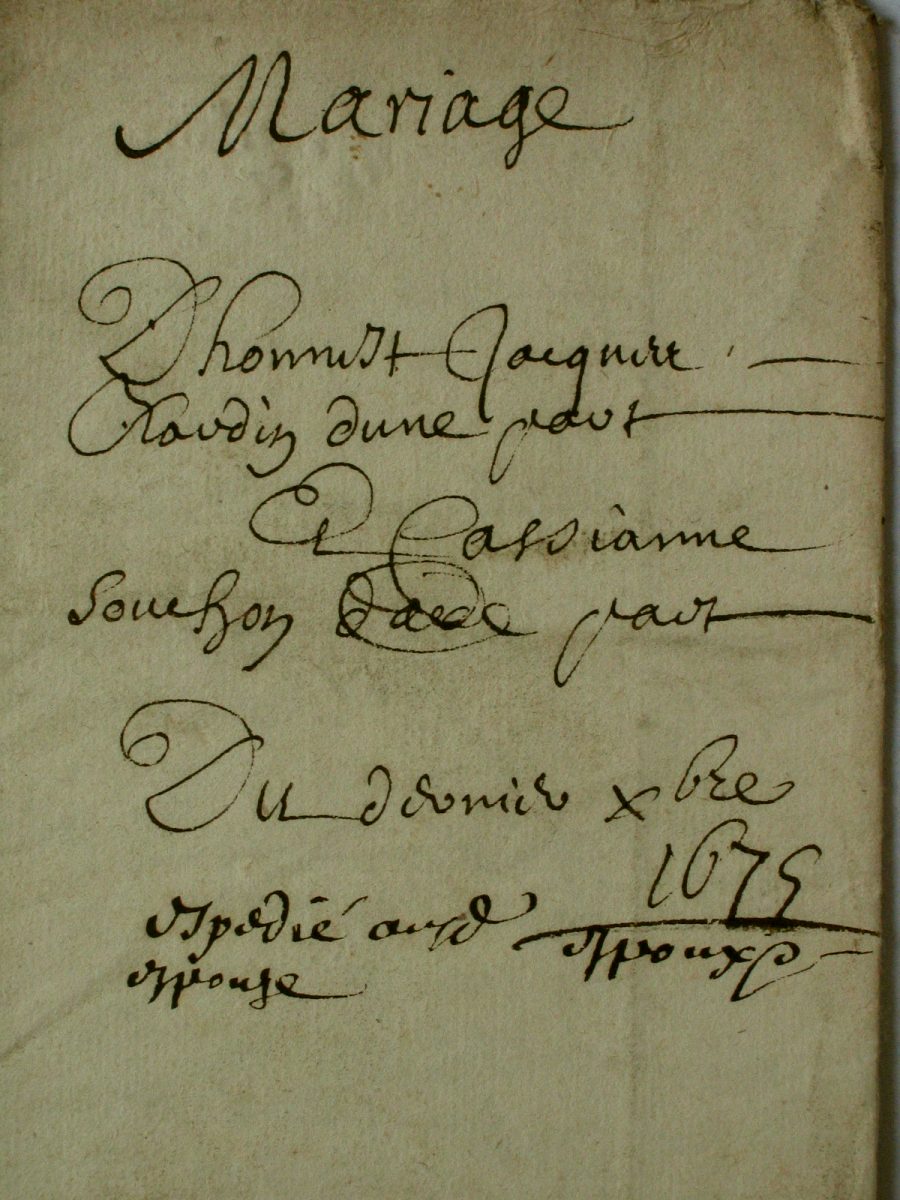 Mariage
Dhonnest Jacques
Claudin dune part
Et Cassianne
Souchon part
Du dernier xbre
1675
espedié aud
espoux
espouse